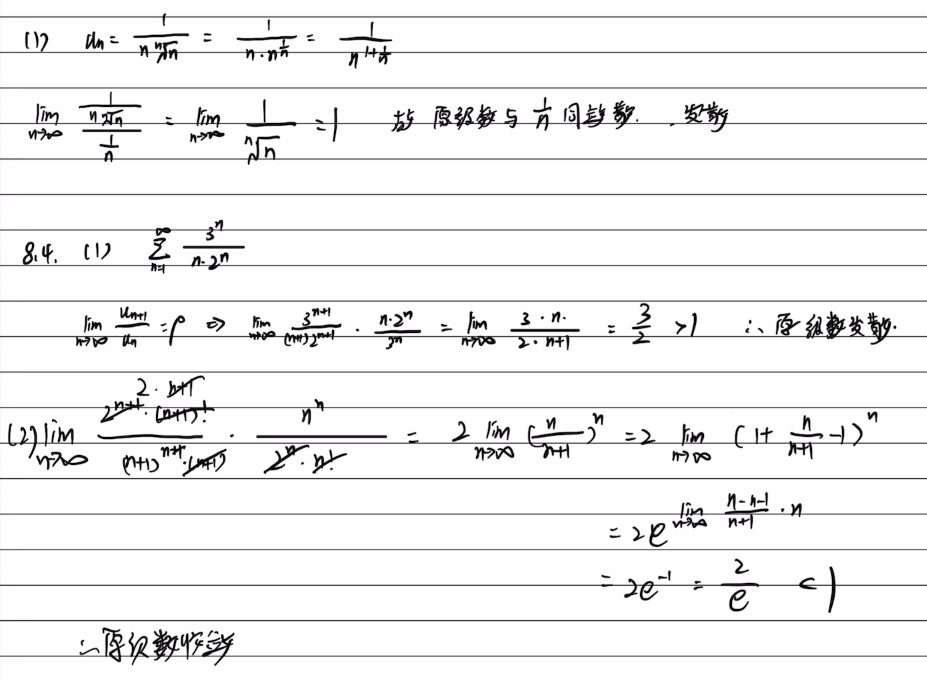 (1) Un = 1/(n ⁿ√n) = 1/(n·n^(1/n)) = 1/n^(1+1/n)
lim n→∞ (1/(n ⁿ√n))/(1/n) = lim n→∞ 1/ⁿ√n = 1 故 原级数与 1/n 同敛散. 发散
8.4. (1) ∑ n=1 ∞ 3^n/(n·2^n)
lim n→∞ Un+1/Un = ρ ⇒ lim n→∞ 3^(n+1)/((n+1)2^(n+1)) · n·2^n/3^n = lim n→∞ 3·n·/2·n+1 = 3/2 >1 ∴ 原级数发散.
2·n+1
(2) lim n→∞ 2^(n+1)·(n+1)!/((n+1)^(n+1)·(n+1)) · n^n/(2^n·n!) = 2 lim n→∞ (n/(n+1))^n = 2 lim n→∞ (1+n/(n+1)-1)^n
= 2e^(lim n→∞ (n-n-1)/(n+1) · n)
= 2e^-1 = 2/e < 1
∴原级数收敛